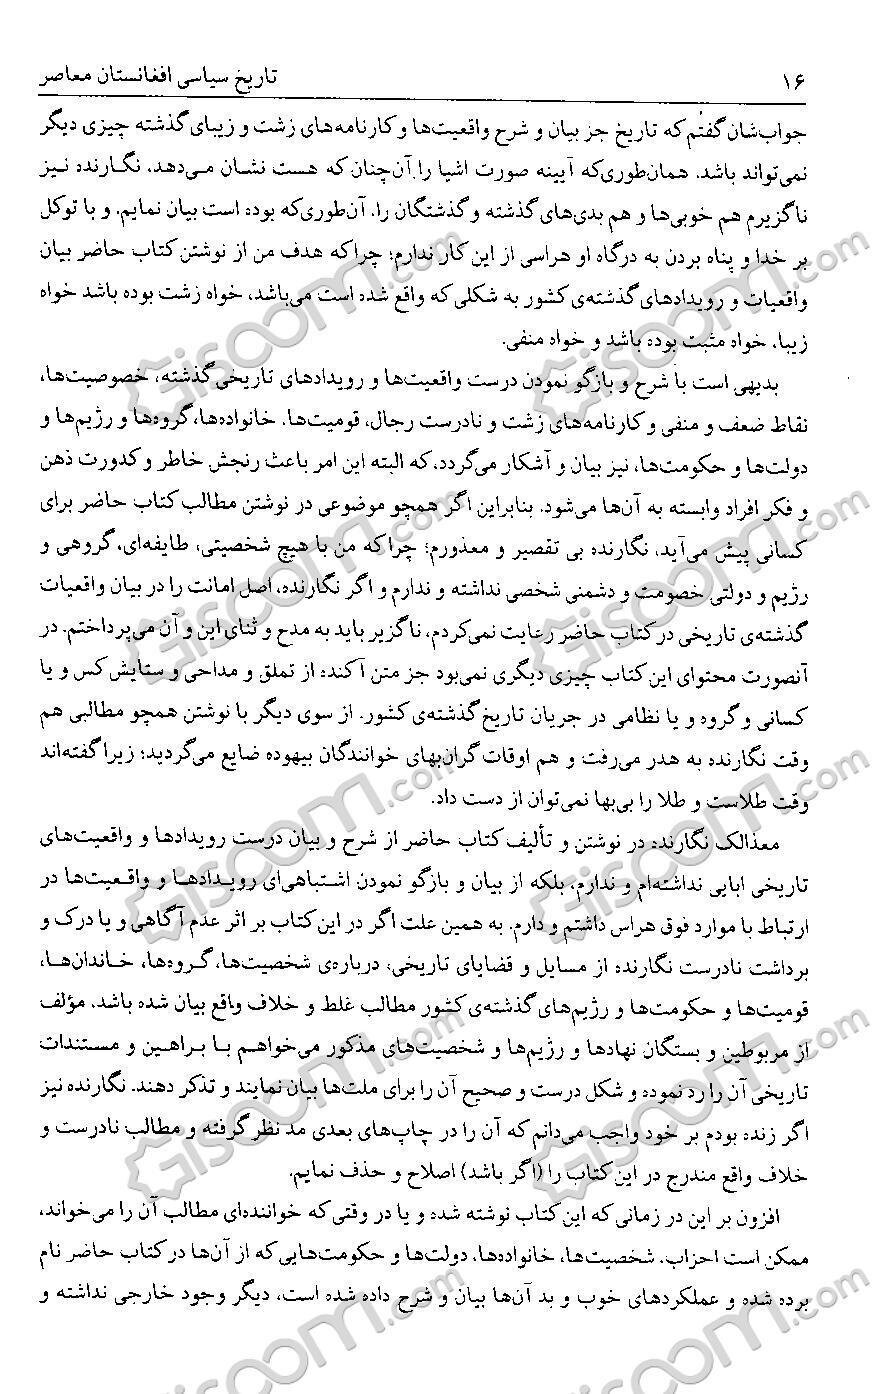 ۱۶ تاریخ سیاسی افغانستان معاصر
جواب‌شان گفتم که تاریخ جز بیان و شرح واقعیت‌ها و کارنامه‌های زشت و زیبای گذشته چیزی دیگر
نمی‌تواند باشد. همان‌طوری‌که آیینه صورت اشیا را آن‌چنان که هست نشان می‌دهد، نگارنده نیز
ناگزیرم هم خوبی‌ها و هم بدی‌های گذشته و گذشتگان را، آن‌طوری‌که بوده است بیان نمایم. و با توکل
بر خدا و پناه بردن به درگاه او هراسی از این کار ندارم؛ چراکه هدف من از نوشتن کتاب حاضر بیان
واقعیات و رویدادهای گذشته‌ی کشور به شکلی که واقع شده است می‌باشد، خواه زشت بوده باشد خواه
زیبا، خواه مثبت بوده باشد و خواه منفی.
بدیهی است با شرح و بازگو نمودن درست واقعیت‌ها و رویدادهای تاریخی گذشته، خصوصیت‌ها،
نقاط ضعف و منفی و کارنامه‌های زشت و نادرست رجال، قومیت‌ها، خانواده‌ها، گروه‌ها و رژیم‌ها و
دولت‌ها و حکومت‌ها، نیز بیان و آشکار می‌گردد، که البته این امر باعث رنجش خاطر و کدورت ذهن
و فکر افراد وابسته به آن‌ها می‌شود. بنابراین اگر همچو موضوعی در نوشتن مطالب کتاب حاضر برای
کسانی پیش می‌آید، نگارنده بی تقصیر و معذورم؛ چراکه من با هیچ شخصیتی، طایفه‌ای، گروهی و
رژیم و دولتی خصومت و دشمنی شخصی نداشته و ندارم و اگر نگارنده، اصل امانت را در بیان واقعیات
گذشته‌ی تاریخی در کتاب حاضر رعایت نمی‌کردم، ناگزیر باید به مدح و ثنای این و آن می‌پرداختم. در
آنصورت محتوای این کتاب چیزی دیگری نمی‌بود جز متن آکنده از تملق و مداحی و ستایش کس و یا
کسانی و گروه و یا نظامی در جریان تاریخ گذشته‌ی کشور. از سوی دیگر با نوشتن همچو مطالبی هم
وقت نگارنده به هدر می‌رفت و هم اوقات گران‌بهای خوانندگان بیهوده ضایع می‌گردید؛ زیرا گفته‌اند
وقت طلاست و طلا را بی‌بها نمی‌توان از دست داد.
معذالک نگارنده در نوشتن و تألیف کتاب حاضر از شرح و بیان درست رویدادها و واقعیت‌های
تاریخی ابایی نداشته‌ام و ندارم، بلکه از بیان و بازگو نمودن اشتباهی‌ای رویدادها و واقعیت‌ها در
ارتباط با موارد فوق هراس داشتم و دارم. به همین علت اگر در این کتاب بر اثر عدم آگاهی و یا درک و
برداشت نادرست نگارنده از مسایل و قضایای تاریخی، درباره‌ی شخصیت‌ها، گروه‌ها، خاندان‌ها،
قومیت‌ها و حکومت‌ها و رژیم‌های گذشته‌ی کشور مطالب غلط و خلاف واقع بیان شده باشد، مؤلف
از مربوطین و بستگان نهادها و رژیم‌ها و شخصیت‌های مذکور می‌خواهم با براهین و مستندات
تاریخی آن را رد نموده و شکل درست و صحیح آن را برای ملت‌ها بیان نمایند و تذکر دهند. نگارنده نیز
اگر زنده بودم بر خود واجب می‌دانم که آن را در چاپ‌های بعدی مد نظر گرفته و مطالب نادرست و
خلاف واقع مندرج در این کتاب را (اگر باشد) اصلاح و حذف نمایم.
افزون بر این در زمانی که این کتاب نوشته شده و یا در وقتی که خواننده‌ای مطالب آن را می‌خواند،
ممکن است احزاب، شخصیت‌ها، خانواده‌ها، دولت‌ها و حکومت‌هایی که از آن‌ها در کتاب حاضر نام
برده شده و عملکردهای خوب و بد آن‌ها بیان و شرح داده شده است، دیگر وجود خارجی نداشته و